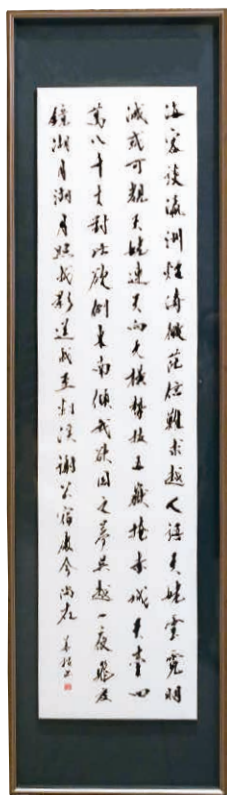 海客談瀛洲烟濤微茫信難求越人語天姥雲霓明
滅或可覩天姥連天向天橫勢拔五嶽掩赤城天臺四
萬八千丈對此欲倒東南傾我欲因之夢吳越一夜飛度
鏡湖月湖月照我影送我至剡溪謝公宿處今尚在